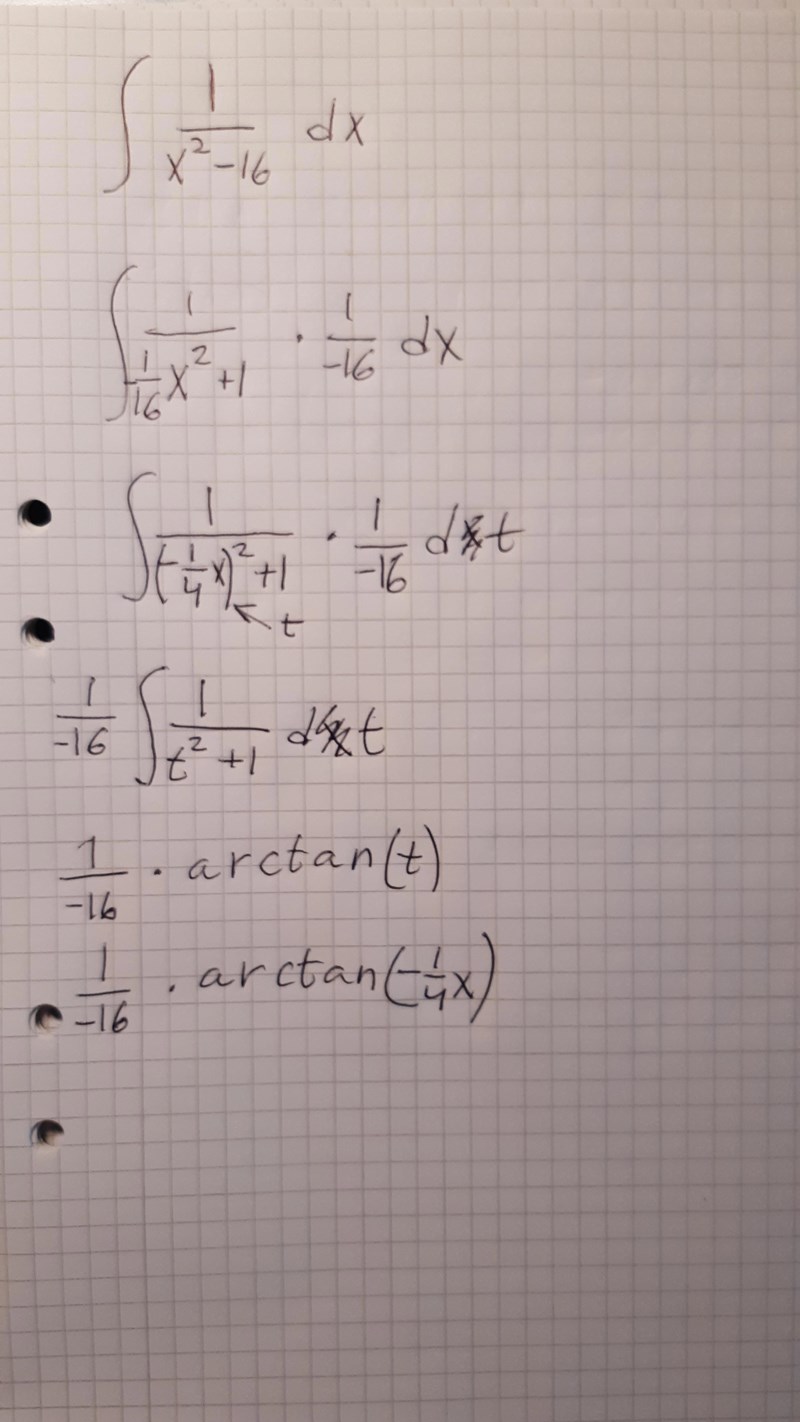 ∫ 1/(x² - 16) dx
∫ 1/(1/16 x² + 1) · 1/-16 dx
∫ 1/((-1/4 x)² + 1) · 1/-16 dt
← t
1/-16 ∫ 1/(t² + 1) dt
1/-16 · arctan(t)
1/-16 · arctan(-1/4 x)